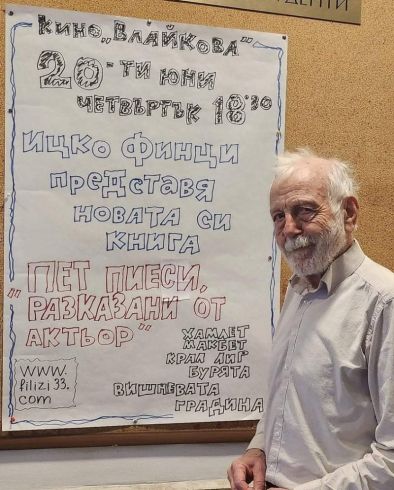 ДЕНТИ
КИНО „ВЛАЙКОВА"
20-ТИ ЮНИ
ЧЕТВЪРТЪК 18:30
ИЦКО ФИНЦИ
ПРЕДСТАВЯ
НОВАТА СИ
КНИГА
„ПЕТ ПИЕСИ,
РАЗКАЗАНИ ОТ
АКТЬОР"
ХАМЛЕТ
МАКБЕТ
КРАЛ ЛИР
БУРЯТА
ВИШНЕВАТА
ГРАДИНА
www.
filizi33.
com